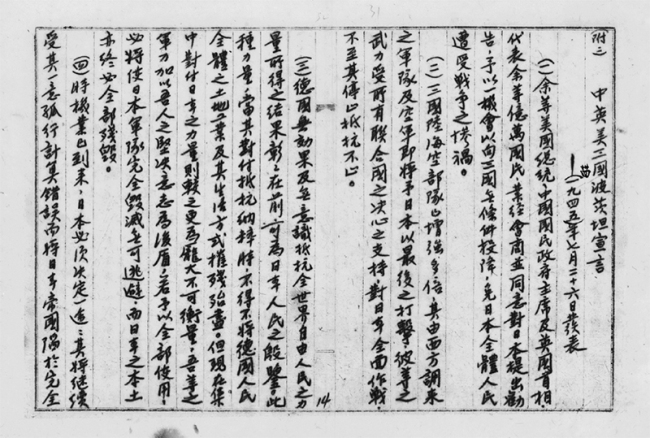 附三
中英美三國波茨坦宣言
（一九四五年七月二十六日發表）
（一）余等美國總統，中國國民政府主席及英國首相，
代表余等億萬國民，業經會商並同意對日本提出勸
告，予以一機會以向三國無條件投降，免日本全體人民
遭受戰爭之慘禍。
（二）三國陸海空部隊已增強多倍，其由西方調來
之軍隊及空軍即將予日本以最後之打擊，彼等之
武力受所有聯合國之决心之支持，對日本全面作戰，
不至其停止抵抗不止。
14
（三）德國無効果及無意識抵抗全世界自由人民之力
量所得之結果，彰彰在前，可為日本人民之殷鑒。此
種力量，當其對付抵抗納粹時，不得不將德國人民
全體之土地工業及其生活方式摧殘殆盡。但現在集
中對付日本之力量則較之更為龐大不可衡量，吾等之
軍力加以吾人之堅决意志為後盾，若予以全部使用，
必將使日本軍隊完全毀滅無可逃避，而日本之本土
亦終必全部殘毀。
（四）時機業已到來，日本必須決定，
其將繼續
受其一意孤行計算錯誤而將日本帝國陷於完全